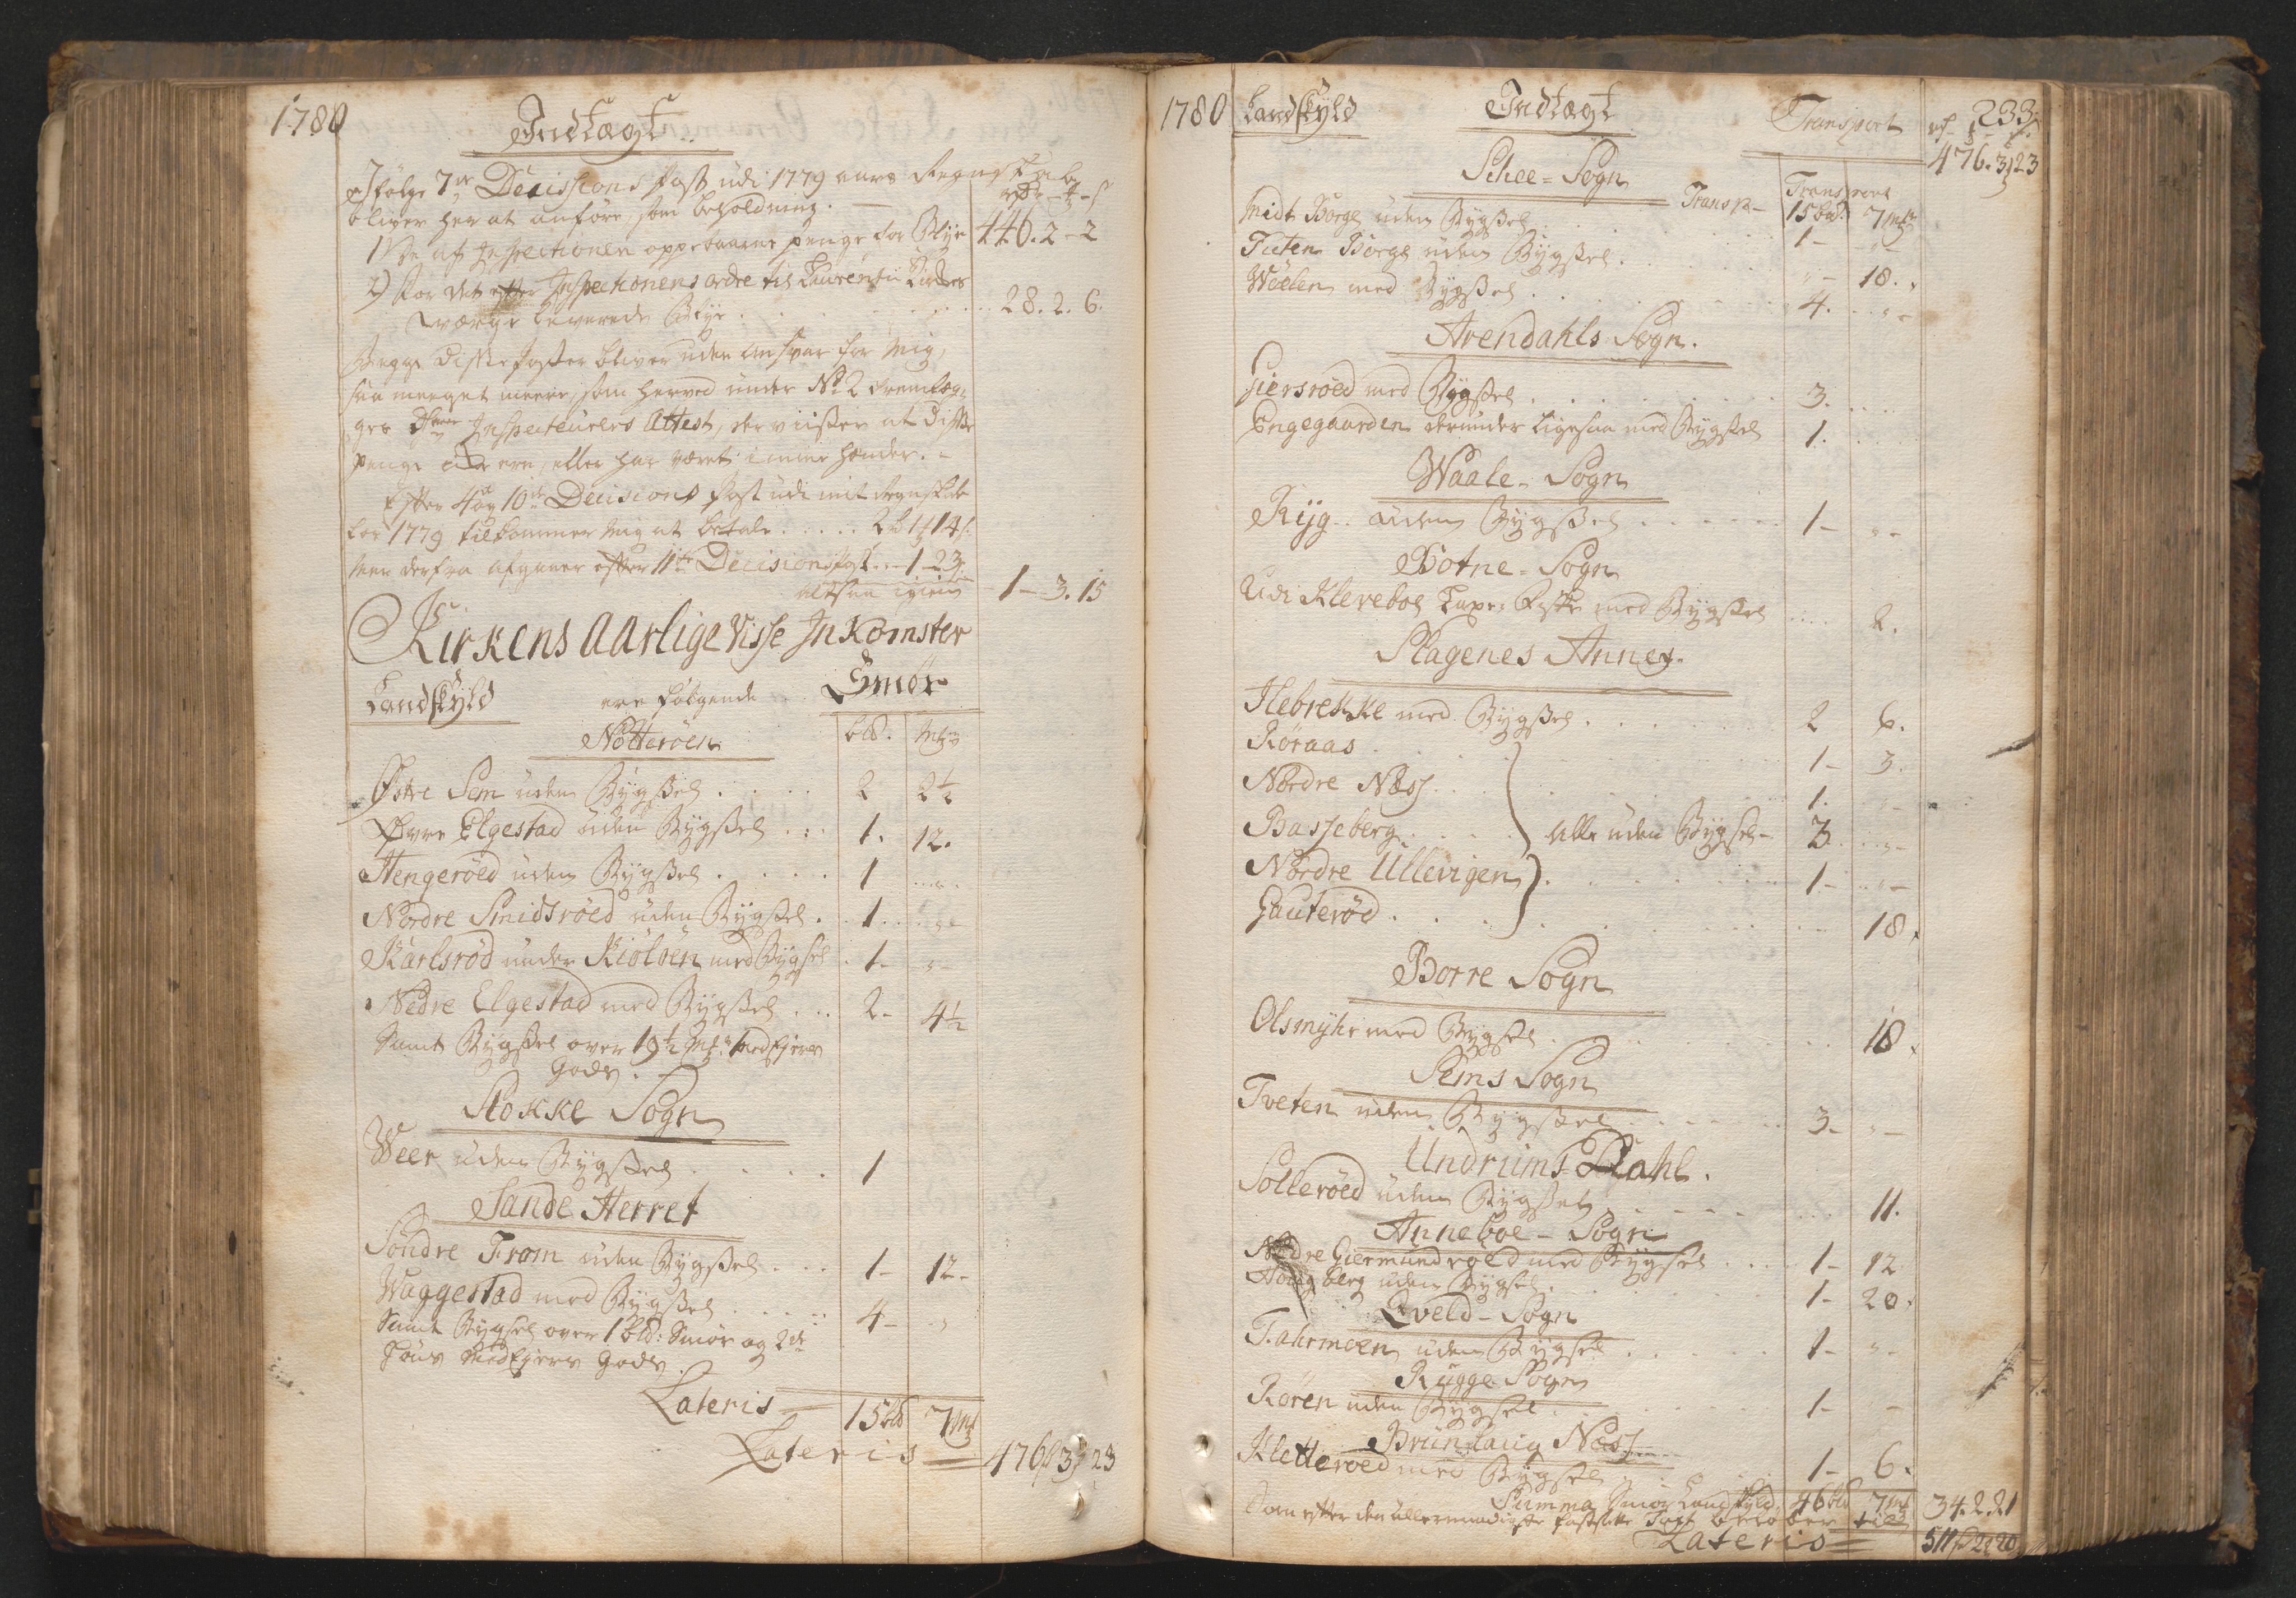 1780
Indtægt
Ifølge 7de Decissions Post udi 1779 aars Regnskab
bliver her at anføre, som beholdning.
1) De af Inspectionen oppebaarne penge for Blye 446. 2 - 2
2) For det efter Inspectionens ordre til Laurentii Kirkes
værge leverede Blye . . . 28. 2. 6.
Begge disse Poster bliver uden Ansvar for mig,
saa meeget meere, som herved under No 2 fremlæg-
ges Inspecteurers Attest, der viiser at disse
penge ere, eller har været i mine hænder. -
Efter 4 og 10de Decisions Post udi mit Regnskab
for 1779 tilkommer mig at betale . . . . . 2 1 14 s.
Men derfra afgaaer efter 11te Decisions Post . - 1 - 23
altsaa igien 1 - 3. 15
Kirkens Aarlige Visse Inkomster
Landskyld ere følgende Smör
Nötteröen bld. mk
Østre Sem uden Bygsel . . . . 2 2½
Øvre Elgestad uden Bygsel . . . 1. 12.
Stengeröed uden Bygsel . . . . 1 „
Nordre Smidsröed uden Bygsel . 1 „
Karlsröd under Kiölöen med Bygsel 1 - „
Nedre Elgestad med Bygsel . . . 2 - 4½
Samt Bygsel over 19½ mk medEjeres
Gods.
Stokke Sogn
Weer uden Bygsel . . . . 1
Sande Herret
Söndre From uden Bygsel . . . 1 - 12 -
Waggestad med Bygsel . . . . 4 - „
Samt Bygsel over 1 bld: Smör og 2de
Huus MedEjeres Gods.
Lateris 15 bld 7 mk
Lateris 476 3 23
1780 Landskyld Indtægt Transport 233.
476. 3 23
Schee - Sogn Transp - Transport 15 bld. 7 mk
Midt Borge uden Bygsel . . . 1 - „
Tuten Borge uden Bygsel . . . „ - 18.
Waalen med Bygsel . . . 4. „
Arendahls Sogn.
Giersröed med Bygsel . . . 3.
Engegaarden derunder ligesaa med Bygsel 1.
Waale - Sogn
Ryg - uden Bygsel . . . 1 - „
Botne - Sogn
Udi Kleveboe Laxe-Fiske med Bygsel . . . 2.
Slagenes Annex.
Hebrekke med Bygsel . . . 2 6.
Röraas . . . 1 - 3.
Nordre Næss . . . 1. „
Basseberg . . . Alle uden Bygsel - 3. „
Nordre Ullevigen . . . 1 - „
Gauteröd . . . 18.
Borre Sogn
Olsmyhr med Bygsel . . . 18.
Sems Sogn
Tveten uden Bygsel . . . 3 - „
Undrums Dahl.
Solleröed uden Bygsel . . . 11.
Anneboe - Sogn
Nedre Giermundröed med Bygsel . . . 1 - 12
Houg berg uden Bygsel . . . 1 - 20.
Qveld - Sogn
Fahrmoen uden Bygsel . . . 1 - „
Rygge Sogn
Roren uden Bygsel . . . 1 - -
Brunlaug Næss
Kletteröed med Bygsel . . . 1 - 6.
Summa Smör Landskyld, 46 bld 7 mk 34. 2. 21
Som efter den allernaadigste fastsatte Taxt beløber til
Lateris 511 2 20